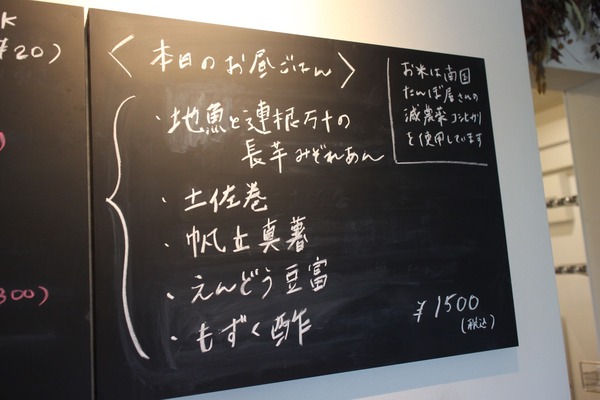 K
¥20)
〈本日のお昼ごはん〉
・地魚と連根万十の
長芋みぞれあん
・土佐巻
・帆立真薯
・えんどう豆富
・もずく酢
¥1500
(税込)
お米は南国
たんぼ屋さんの
減農薬コシヒカリ
を使用しています
300)